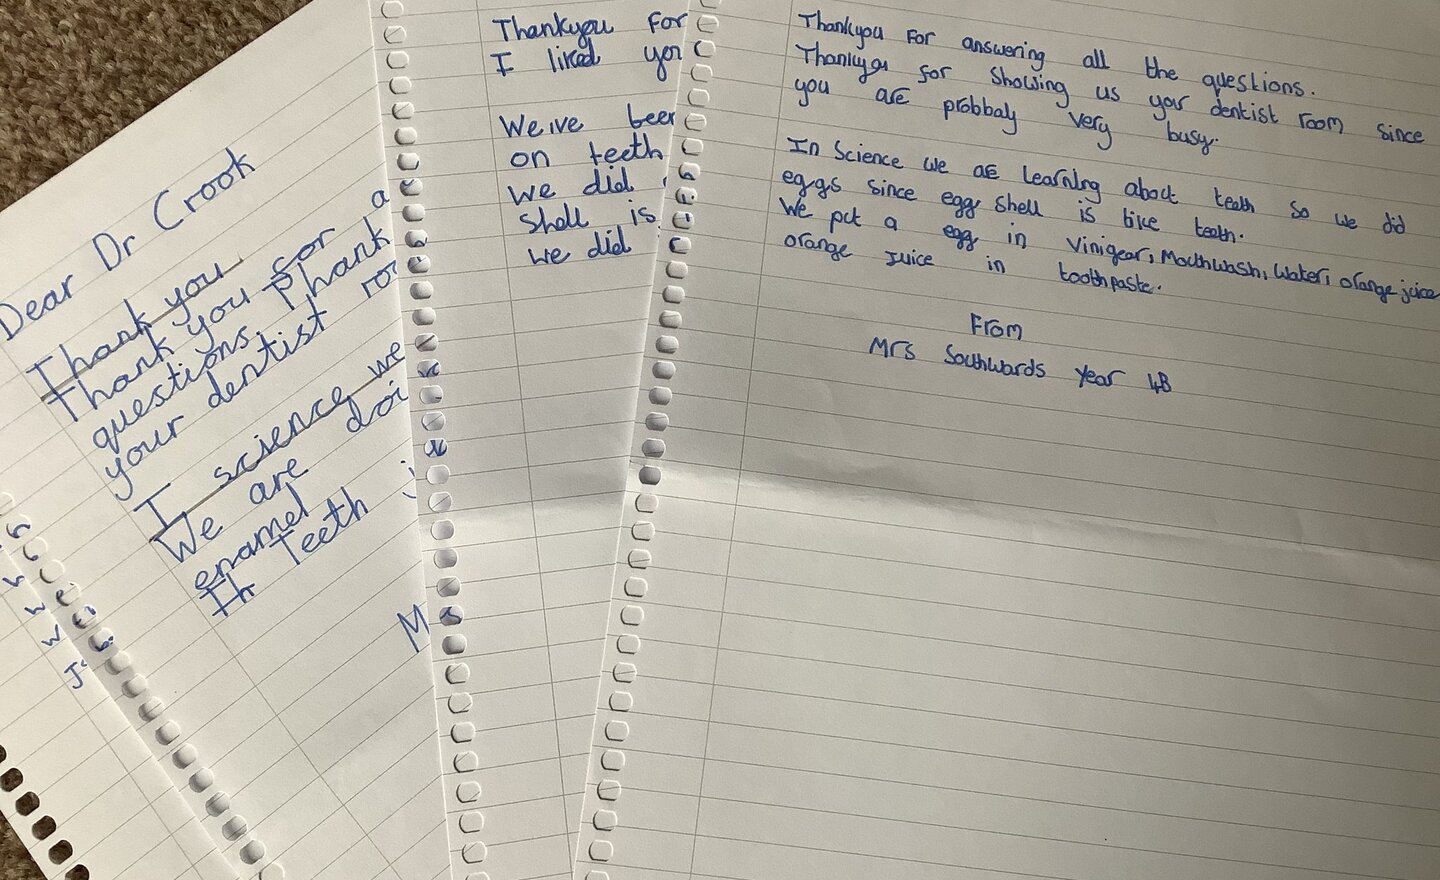 Dear Dr Crook
Thank you
Thank you for a
questions. Thank
your dentist roo
I science we
We are doi
enamel
Th Teeth
M
Thankyou For
I liked you
We ive been
on teeth
we did
shell is
we did
Thankyou For answering all the questions.
Thankyou for showing us your dentist room since
you are probbaly very busy.
In Science we are learning about teeth so we did
eggs since egg shell is like teeth.
We put a egg in vinigear, Mouthwash, water, orange juice
orange juice in toothpaste.
From
Mrs Southwards year 4B